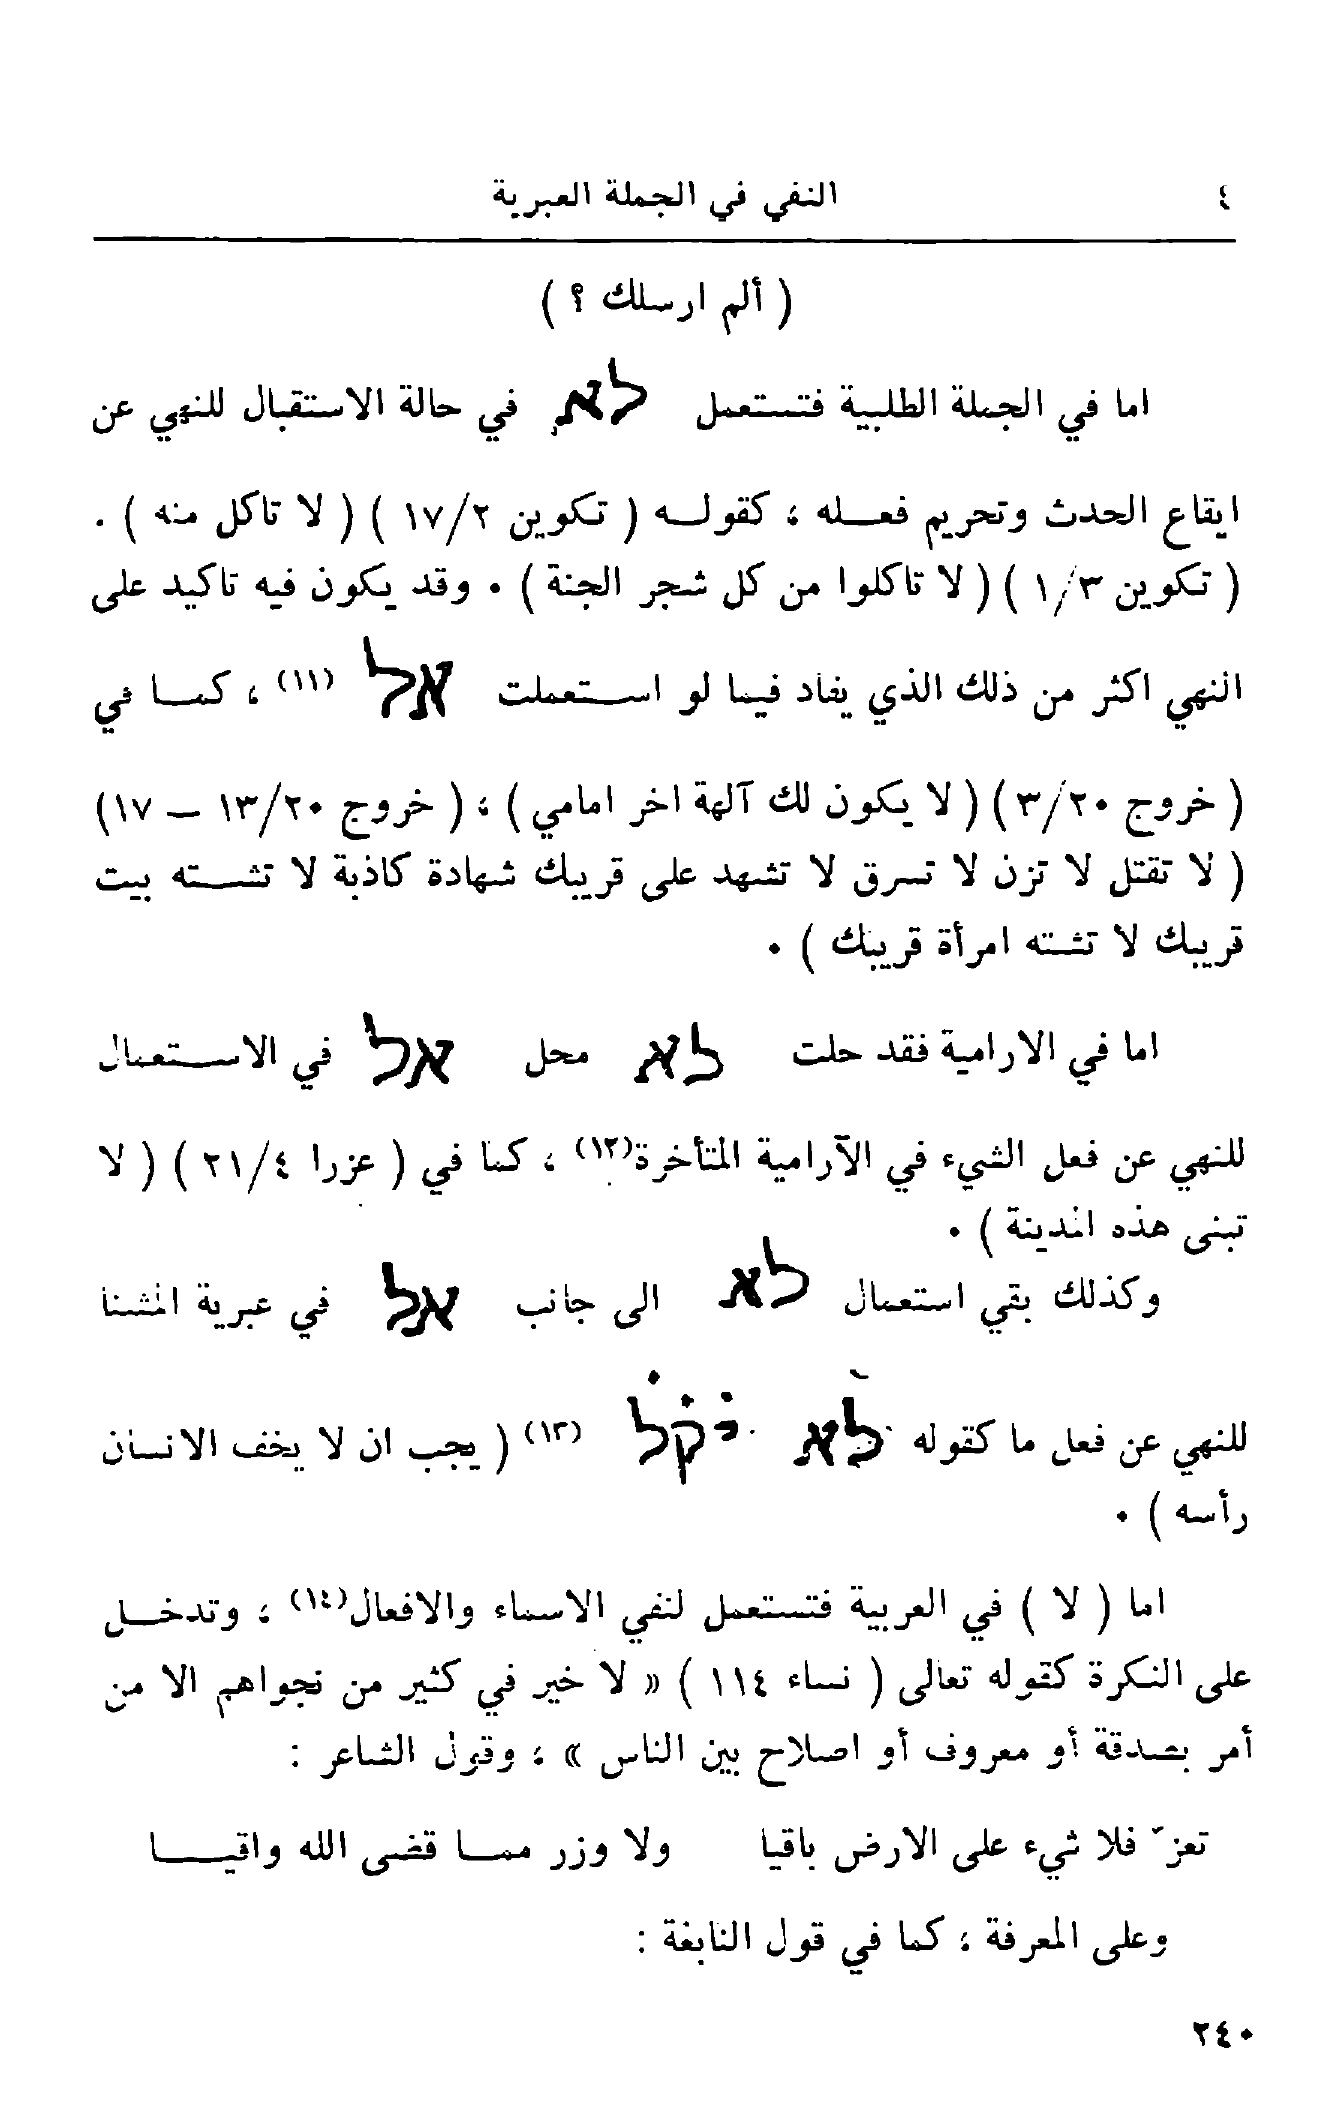 ٤ النفي في الجملة العبرية
( ألم ارسلك ؟ )
اما في الجملة الطلبية فتستعمل לא في حالة الاستقبال للنهي عن
ايقاع الحدث وتحريم فعله ، كقوله ( تكوين ١٧/٢ ) ( لا تاكل منه ) .
( تكوين ١/٣ ) ( لا تاكلوا من كل شجر الجنة ) . وقد يكون فيه تاكيد على
النهي اكثر من ذلك الذي يفاد فيما لو استعملت אל (١١) ، كما في
( خروج ٣/٢٠ ) ( لا يكون لك آلهة اخر امامي ) ، ( خروج ١٣/٢٠ – ١٧ )
( لا تقتل لا تزن لا تسرق لا تشهد على قريبك شهادة كاذبة لا تشته بيت
قريبك لا تشته امرأة قريبك ) .
اما في الارامية فقد حلت לא محل אל في الاستعمال
للنهي عن فعل الشيء في الآرامية المتأخرة(١٢) ، كما في ( عزرا ٢١/٤ ) ( لا
تبنى هذه المدينة ) .
وكذلك بقي استعمال לא الى جانب אל في عبرية المشنا
للنهي عن فعل ما كقوله לא יקל (١٣) ( يجب ان لا يخف الانسان
رأسه ) .
اما ( لا ) في العربية فتستعمل لنفي الاسماء والافعال(١٤) ، وتدخل
على النكرة كقوله تعالى ( نساء ١١٤ ) « لا خير في كثير من نجواهم الا من
أمر بصدقة أو معروف أو اصلاح بين الناس » ، وقول الشاعر :
تعزّ فلا شيء على الارض باقيا ولا وزر مما قضى الله واقيا
وعلى المعرفة ، كما في قول النابغة :
٢٤٠